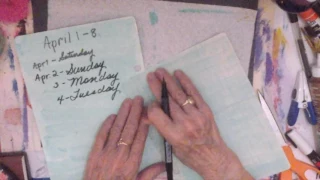 April 1-8.
Apr 1 - Saturday
Apr 2 - Sunday
3 - Monday
4 - Tuesday